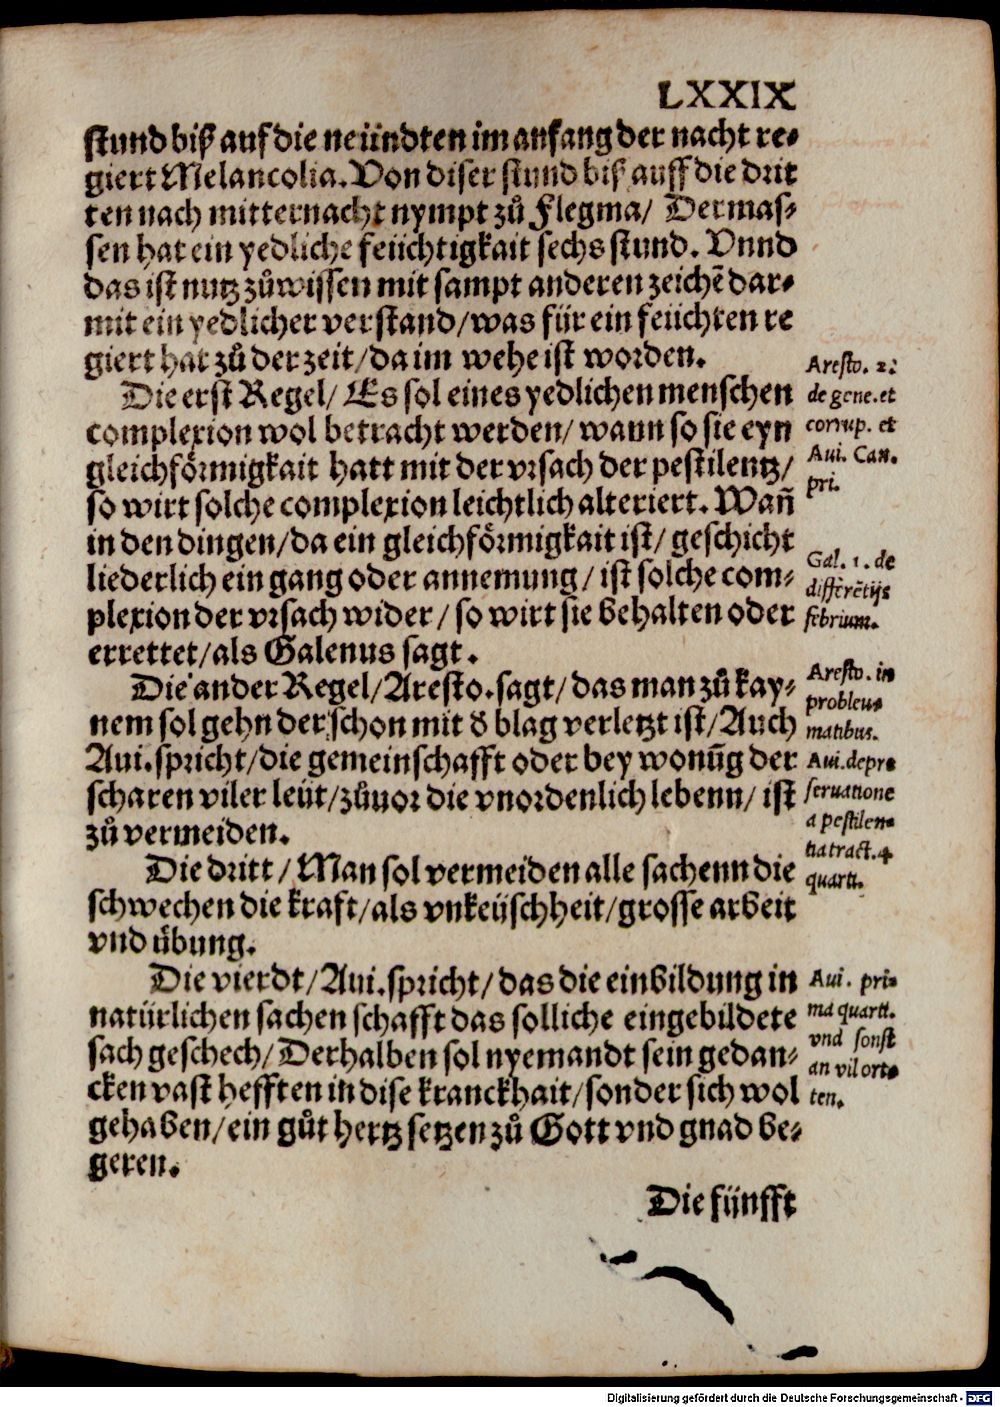 LXXIX
stund biß auf die neündten im anfang der nacht re-
giert Melancolia. Von diser stund biß auff die drit
ten nach mitternacht nympt zů Flegma/ Dermas-
sen hat ein yedliche feüchtigkait sechs stund. Vnnd
das ist nutz zůwissen mit sampt anderen zeichẽ dar-
mit ein yedlicher verstand/was für ein feüchten re
giert hat zů der zeit/da im wehe ist worden.
Die erst Regel/ Es sol eines yedlichen menschen
complexion wol betracht werden/ wann so sie eyn
gleichförmigkait hatt mit der vrsach der pestilentz/
so wirt solche complexion leichtlich alteriert. Wañ
in den dingen/da ein gleichförmigkait ist/ geschicht
liederlich ein gang oder annemung/ ist solche com-
plexion der vrsach wider/ so wirt sie behalten oder
errettet/als Galenus sagt.
Die ander Regel/Aresto.sagt/das man zů kay-
nem sol gehn der schon mit d' blag verletzt ist/Auch
Aui.spricht/die gemeinschafft oder bey wonũg der
scharen viler leüt/zůuor die vnordenlich lebenn/ ist
zů vermeiden.
Die dritt/Man sol vermeiden alle sachenn die
schwechen die kraft/als vnkeüschheit/grosse arbeit
vnd übung.
Die vierdt/Aui.spricht/das die einbildung in
natürlichen sachen schafft das solliche eingebildete
sach geschech/Derhalben sol nyemandt sein gedan-
cken vast hefften in dise kranckhait/sonder sich wol
gehaben/ein gůt hertz setzen zů Gott vnd gnad be-
geren.
Die fünfft
Aresto. 2.
de gene.et
corrup. et
Aui. Can.
pri.
Gal. 1. de
differẽtijs
febrium.
Aresto. in
probleu-
matibus.
Aui.de pre-
seruatione
a pestilen-
tia tract.4
quarti.
Aui. pri-
ma quarti.
vnd sonst
an vil ort-
ten.
Digitalisierung gefördert durch die Deutsche Forschungsgemeinschaft - DFG